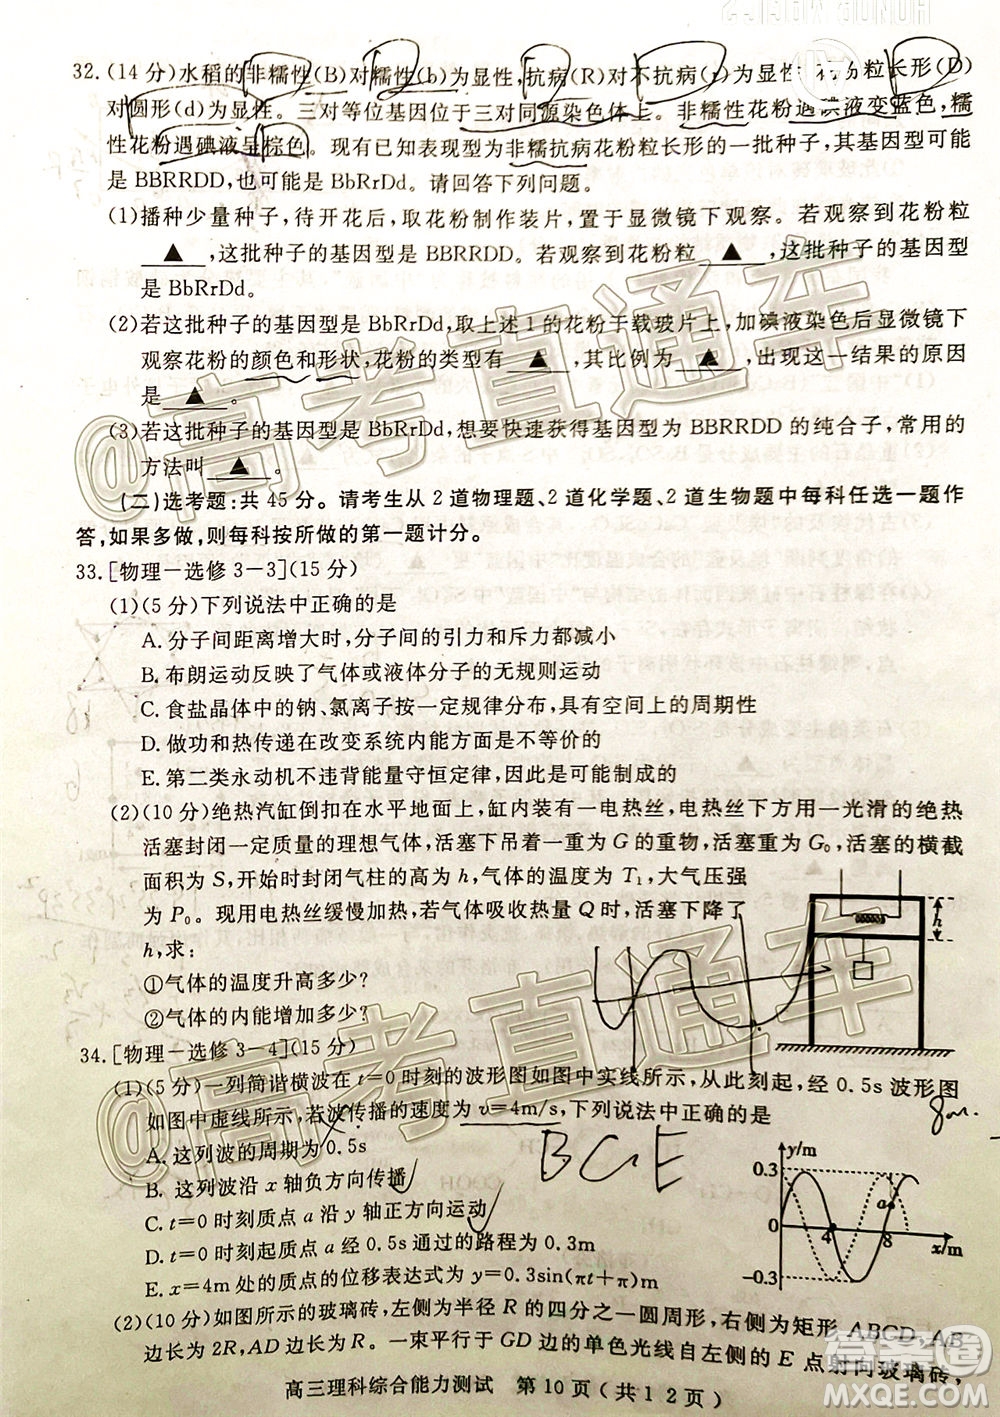 32.(14分)水稻的非糯性(B)对糯性(b)为显性,抗病(R)对不抗病(r)为显性,花粉粒长形(D)
对圆形(d)为显性。三对等位基因位于三对同源染色体上。非糯性花粉遇碘液变蓝色,糯
性花粉遇碘液呈棕色。现有已知表现型为非糯抗病花粉粒长形的一批种子,其基因型可能
是BBRRDD,也可能是BbRrDd。请回答下列问题。
(1)播种少量种子,待开花后,取花粉制作装片,置于显微镜下观察。若观察到花粉粒
▲,这批种子的基因型BBRRDD。若观察到花粉粒▲,这批种子的基因型
是BbRrDd。
(2)若这批种子的基因型是BbRrDd,取上述1的花粉于载玻片上,加碘液染色后显微镜下
观察花粉的颜色和形状,花粉的类型有▲,其比例为▲,出现这一结果的原因
是▲。
(3)若这批种子的基因型是BbRrDd,想要快速获得基因型为BBRRDD的纯合子,常用的
方法叫▲。
(二)选考题:共45分。请考生从2道物理题、2道化学题、2道生物题中每科任选一题作
答,如果多做,则每科按所做的第一题计分。
33.[物理—选修3-3](15分)
(1)(5分)下列说法中正确的是
A.分子间距离增大时,分子间的引力和斥力都减小
B.布朗运动反映了气体或液体分子的无规则运动
C.食盐晶体中的钠、氯离子按一定规律分布,具有空间上的周期性
D.做功和热传递在改变系统内能方面是不等价的
E.第二类永动机不违背能量守恒定律,可能制成的
(2)(10分)绝热汽缸倒扣在水平地面上,缸内装有一电热丝,电热丝下方用一光滑的绝热
活塞封闭一定质量的理想气体,活塞下吊着一重为G的重物,活塞重为G₀,活塞的截
面积为S,开始时封闭气柱的高为h,气体的温度为T₁,大气压强
为P₀。现用电热丝缓慢加热,若气体吸收热量Q时,活塞下降了
h,求:
①气体的温度升高多少?
②气体的内能增加多少?
h
34.[物理—选修3-4](15分)
(1)(5分)一列简谐横波在t=0时刻的波形图如图中实线所示,从此刻起,经0.5s波形图
如图中虚线所示,若波传播的速度为v=4m/s,下列说法中正确的是
8m.
A.这列波的周期为0.5s
B.这列波沿x轴负方向传播
C.t=0时刻质点a沿y轴正方向运动
D.从t=0时刻开始质点a经0.5s通过的路程为0.3m
E.x=4m处的质点的位移表达式为y=0.3sin(πt+π)m
BCE
y/m
0.3
0
-0.3
4
8
a
x/m
(2)(10分)如图所示的玻璃砖,左侧为半径R的四分之一圆周形,右侧为矩形ABCD,AB
边长为2R,AD边长为R。一束平行于GD边的单色光线自左侧的E点射向玻璃砖,
高三理科综合能力测试 第10页(共12页)
@高考直通车
@高考直通车
答案圈